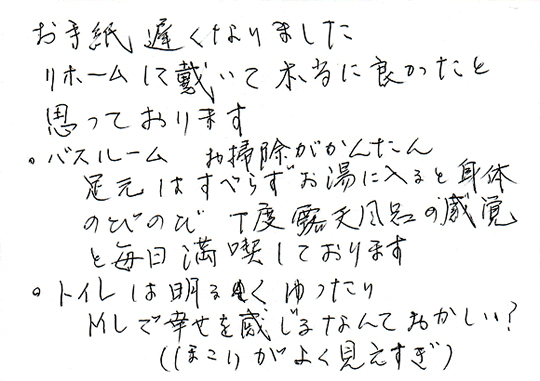 お手紙 遅くなりました
リホームして戴いて 本当に良かったと
思っております
・バスルーム お掃除がかんたん
足元はすべらず お湯に入ると身体
のびのび 丁度 露天風呂の感覚
と毎日 満喫しております
・トイレは明るく ゆったり
トイレで幸せを感じるなんておかしい?
(ほこりがよく見えすぎ)